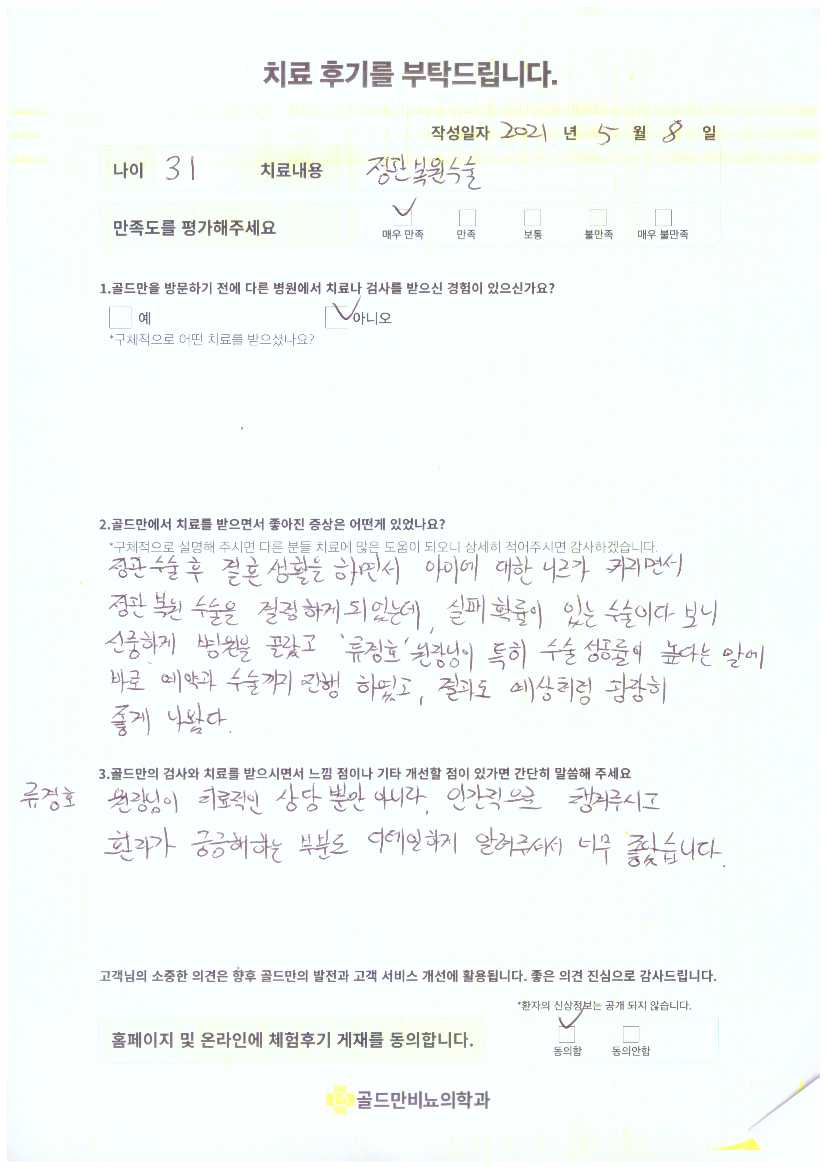 치료 후기를 부탁드립니다.
작성일자 2021 년 5 월 8 일
나이 31 치료내용 정관복원수술
만족도를 평가해주세요
매우 만족 만족 보통 불만족 매우 불만족
1.골드만을 방문하기 전에 다른 병원에서 치료나 검사를 받으신 경험이 있으신가요?
예 아니오
*구체적으로 어떤 치료를 받으셨나요?
2.골드만에서 치료를 받으면서 좋아진 증상은 어떤게 있었나요?
*구체적으로 설명해 주시면 다른 분들 치료에 많은 도움이 되오니 상세히 적어주시면 감사하겠습니다.
정관수술 후 결혼 생활을 하면서 아이에 대한 니즈가 커지면서
정관 복원 수술을 결정하게 되었는데, 실패 확률이 있는 수술이다 보니
신중하게 병원을 골랐고 '류정호' 원장님이 특히 수술 성공률이 높다는 말에
바로 예약과 수술까지 진행 하였고, 결과도 예상처럼 굉장히
좋게 나왔다.
3.골드만의 검사와 치료를 받으시면서 느낌 점이나 기타 개선할 점이 있가면 간단히 말씀해 주세요
류정호 원장님이 의료적인 상담 뿐만 아니라, 인간적으로 챙겨주시고
환자가 궁금해하는 부분도 디테일하게 알려주셔서 너무 좋았습니다.
고객님의 소중한 의견은 향후 골드만의 발전과 고객 서비스 개선에 활용됩니다. 좋은 의견 진심으로 감사드립니다.
*환자의 신상정보는 공개 되지 않습니다.
홈페이지 및 온라인에 체험후기 게재를 동의합니다.
동의함 동의안함
골드만비뇨의학과